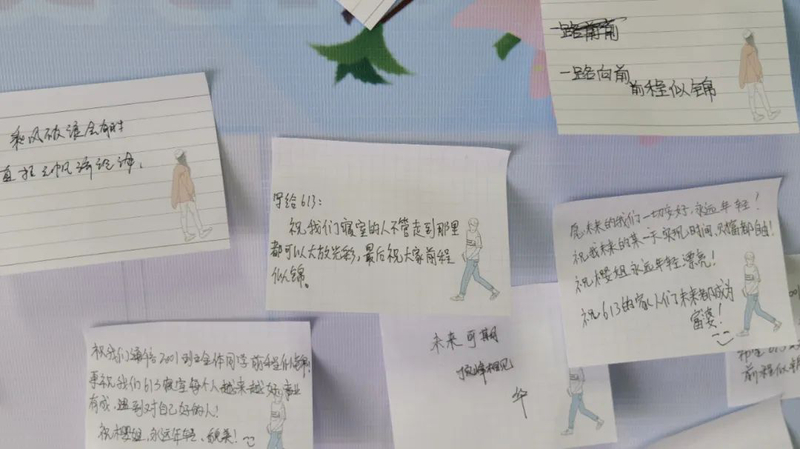 一路向前
前程似锦
乘风破浪会有时
直挂云帆济沧海
写给613：
祝我们寝室的人不管走到那里
都可以大放光彩，最后祝大家前程
似锦。
愿未来的我们一切安好，永远年轻！
祝我未来的某一天实现时间，财富都自由！
祝樱姐永远年轻漂亮！
祝613的家人们未来都成为
富婆！
祝我们通信2001班全体同学前程似锦！
再祝我们613寝室每个人越来越好，事业
有成，遇到对自己好的人！
祝樱姐，永远年轻、貌美！
未来可期
顶峰相见
华
前程似锦